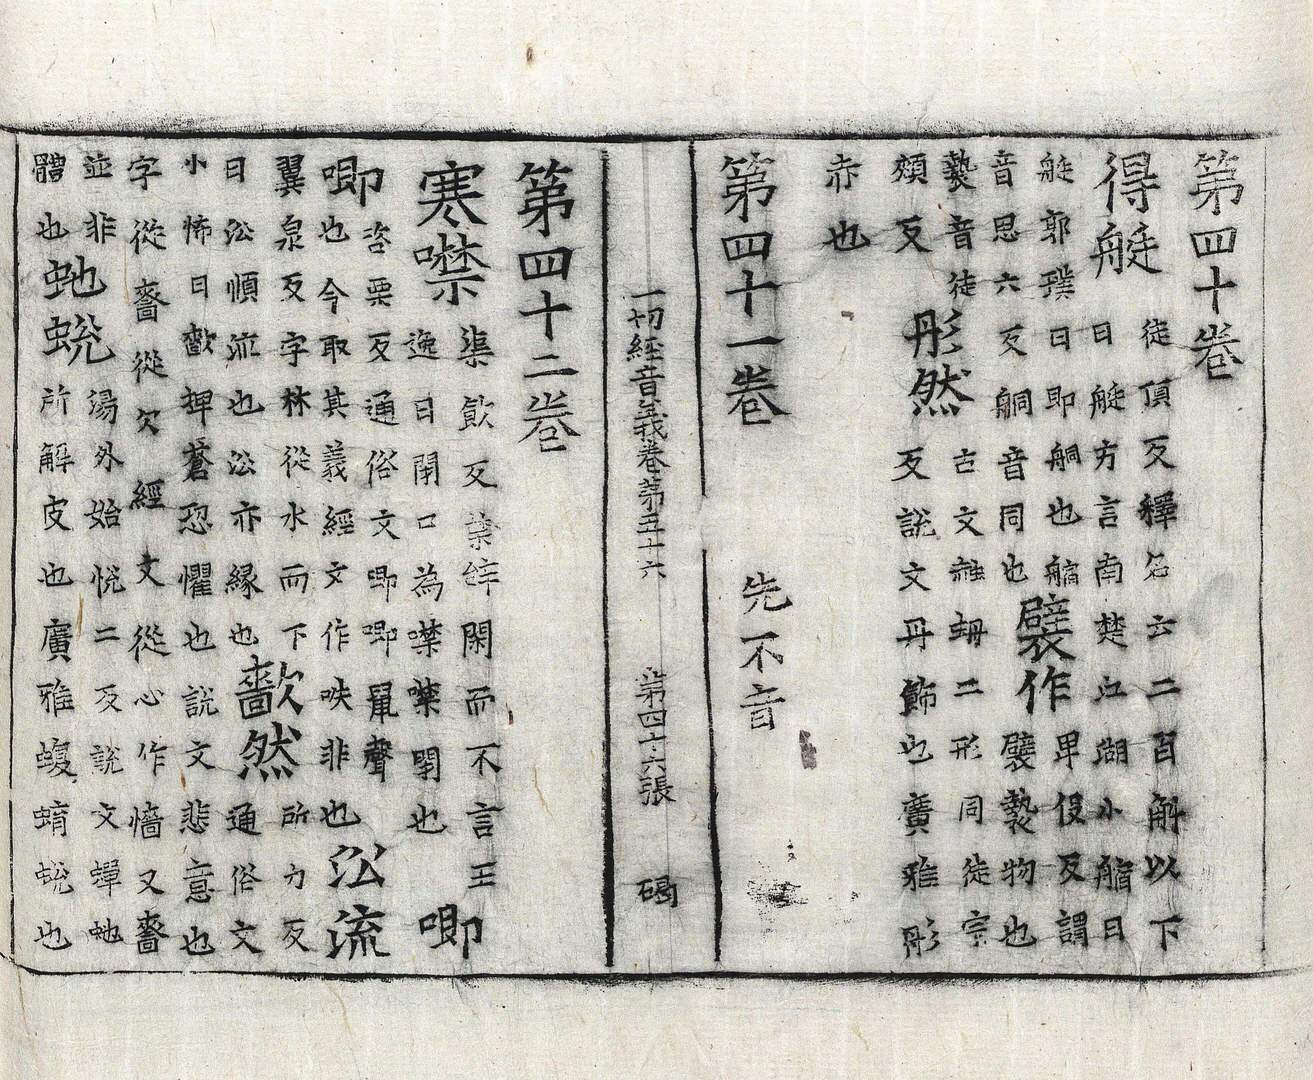 第四十卷
得艇
徒頂反釋名云二百斛以下
曰艇方言南楚江湖小艒曰
艇郭璞曰即䑠也艒
音思六反䑠音同也
襞作
卑役反謂
襞褺物也
褺音徒
頰反
彤然
古文赨蚒二形同徒宗
反說文丹飾也廣雅彤
赤也
第四十一卷 先不音
一切經音義卷第五十六 第四十六張 碣
第四十二卷
寒噤
渠飲反楚辝閉而不言王
逸曰閉口為噤噤閉也
唧
唧
咨栗反通俗文唧唧鼠聲
也今取其義經文作呹非也
㳂流
翼泉反字林從水而下
曰㳂順流也㳂亦緣也
㱇然
所力反
通俗文
小怖曰㱇埤蒼恐懼也說文悲意也
字從嗇從欠經文從心作懎又嗇
並非
體也
虵蛻
湯外始悅二反說文蟬虵
所解皮也廣雅蝮蜟蛻也